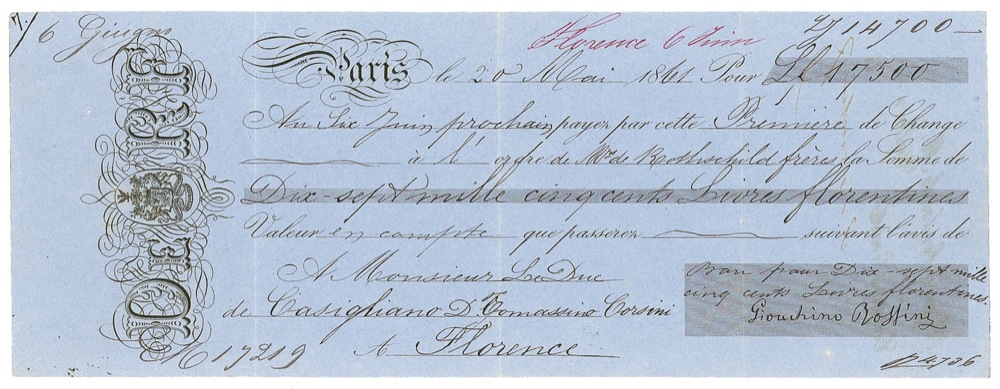 6 Giugno
Florence 6 Juin
14700
Paris le 20 Mai 1861 Pour 17500
Au Six Juin prochain payez par cette Première de Change
à l' ordre de Mrs de Rothschild frères la Somme de
Dix-sept mille cinq cents Livres florentines
Valeur en compte que passerez suivant l'avis de
A Monsieur Le Duc
de Casigliano D. Tomassino Corsini
à Florence
Bon pour Dix-sept mille
cinq cents Livres florentines.
Giouchino Rossini
17219
4736